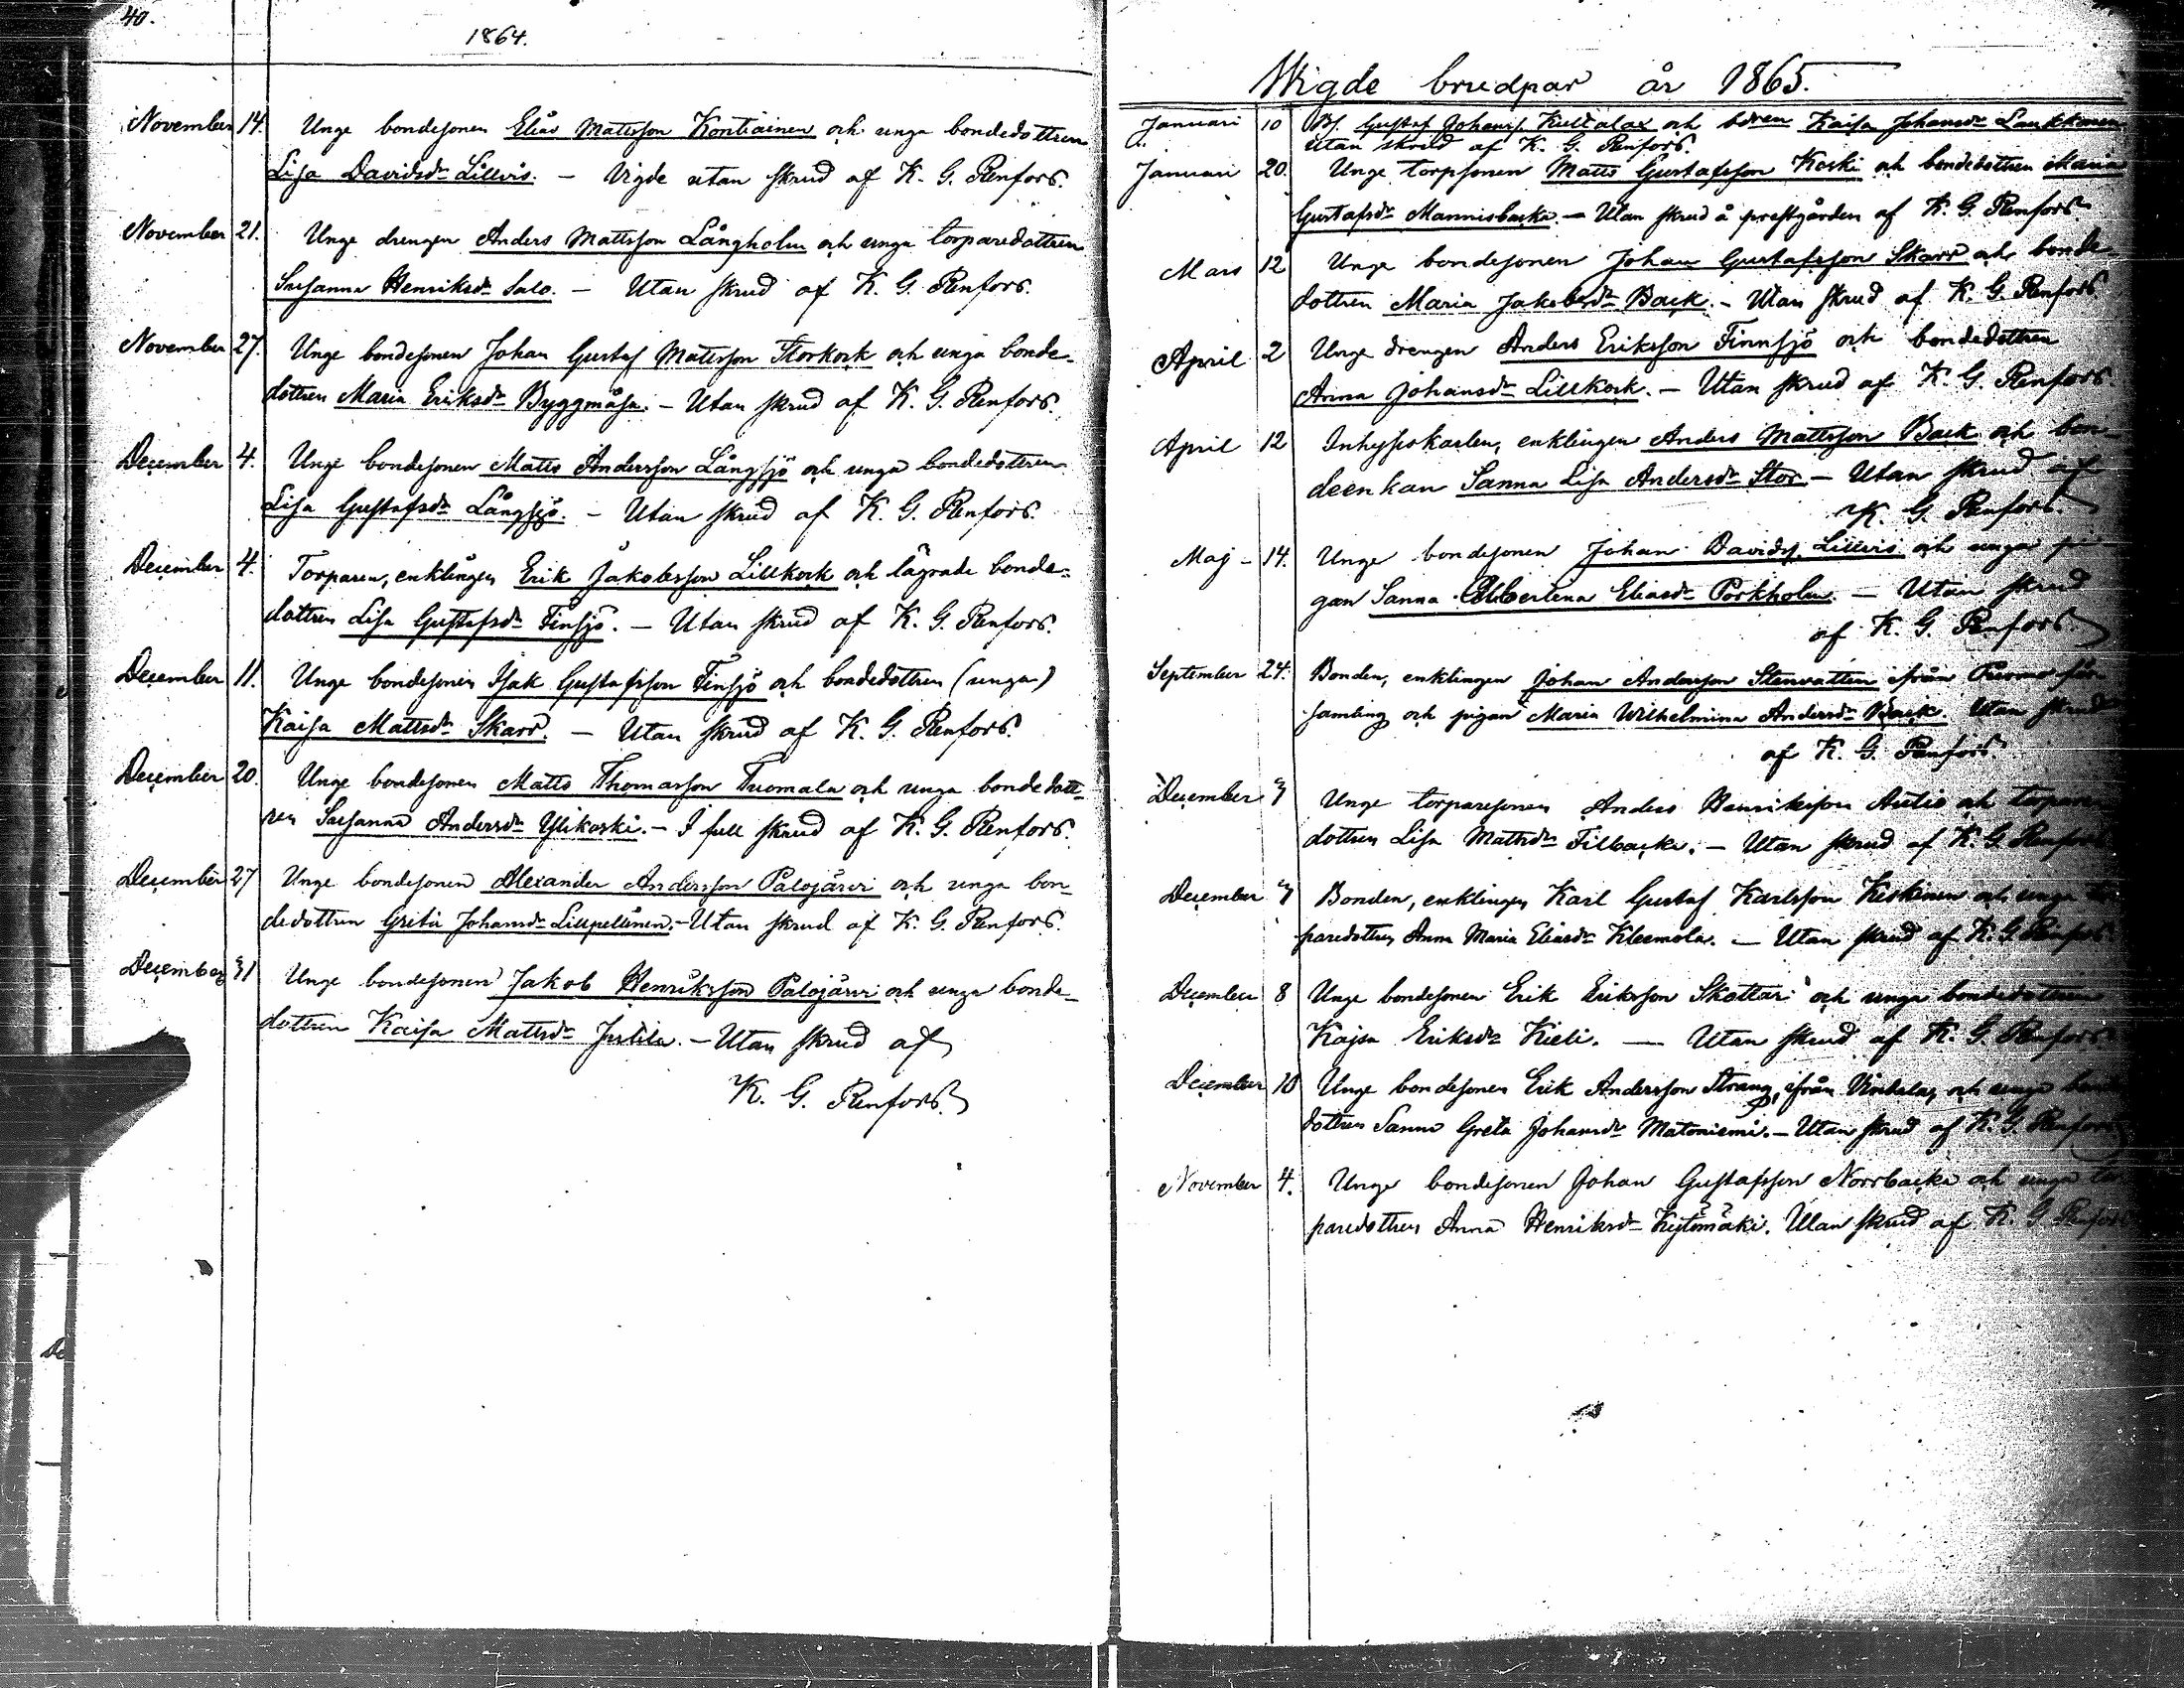 40.
1864.
November 14. Unge bondesonen Elias Mattsson Kontiainen och unga bondedottren
Lisa Davidsdr Lillvis. – Vigde utan skrud af K. G. Renfors.
November 21. Unge drengen Anders Mattsson Långholm och unga torparedottren
Susanna Henriksdr Salo. – Utan skrud af K. G. Renfors.
November 27. Unge bondesonen Johan Gustaf Mattsson Storkock och unga bonde-
dottren Maria Eriksdr Byggmåsa. – Utan skrud af K. G. Renfors.
December 4. Unge bondesonen Matts Andersson Långsjö och unga bondedottren
Lisa Gustafsdr Långsjö. – Utan skrud af K. G. Renfors.
December 4. Torparen, enklingen Erik Jakobsson Lillkock och lägrade bonde-
dottren Lisa Gustafsdr Finsjö. – Utan skrud af K. G. Renfors.
December 11. Unge bondesonen Isak Gustafsson Finsjö och bondedottren (unga)
Kaisa Mattsdr Skarp. – Utan skrud af K. G. Renfors.
December 20. Unge bondesonen Matts Thomasson Tuomala och unga bondedott-
ren Susanna Andersdr Ylikoski. – I full skrud af K. G. Renfors.
December 27 Unge bondesonen Alexander Andersson Palojärvi och unga bon-
dedottren Greta Johansdr Lillpellinen. – Utan skrud af K. G. Renfors.
December 31 Unge bondesonen Jakob Henriksson Palojärvi och unga bonde-
dottren Kaisa Mattsdr Justila. – Utan skrud af
K. G. Renfors.
Wigde brudpar år 1865.
Januari 10 Bs. Gustaf Johans. Kultalax och bdren Kaisa Johansdr Laukkonen
utan skrud af K. G. Renfors.
Januari 20. Unge torpsonen Matts Gustafsson Koski och bondedottren Maria
Gustafsdr Mannisbacka. – Utan skrud å prestgården af K. G. Renfors
Mars 12 Unge bondesonen Johan Gustafsson Skarp och bonde-
dottren Maria Jakobsdr Back. – Utan skrud af K. G. Renfors
April 2 Unge drengen Anders Eriksson Finnsjö och bondedottren
Anna Johansdr Lillkock. – Utan skrud af K. G. Renfors.
April 12 Inhyseskarlen, enklingen Anders Mattsson Back och bon-
deenkan Sanna Lisa Andersdr Stor – Utan skrud af
K. G. Renfors.
Maj – 14. Unge bondesonen Johan Davids. Lillvis och unga pi-
gan Sanna Albertina Eliasdr Porkholm. – Utan skrud
af K. G. Renfors.
September 24. Bonden, enklingen Johan Andersson Stenvattin ifrån Purmo för-
samling och pigan Maria Wilhelmina Andersdr Back. Utan skrud
af K. G. Renfors.
December 3 Unge torparesonen Anders Henriksson Autio och torpare-
dottren Lisa Mattsdr Tilbacka. – Utan skrud af K. G. Renfors
December 3 Bonden, enklingen Karl Gustaf Karlsson Keskinen och unga
paredottren Anna Maria Eliasdr Kleemola. – Utan skrud af K. G. Renfors
December 8 Unge bondesonen Erik Eriksson Skottari och unga bondedottren
Kajsa Eriksdr Kieli. – Utan skrud af K. G. Renfors
December 10 Unge bondesonen Erik Andersson Strang, ifrån Vindala, och unga
dottren Sanna Greta Johansdr Matoniemi. – Utan skrud af K. G. Renfors
November 4. Unge bondesonen Johan Gustafsson Norrbacka och unga tor-
paredottren Anna Henriksdr Kystimäki. Utan skrud af K. G. Renfors